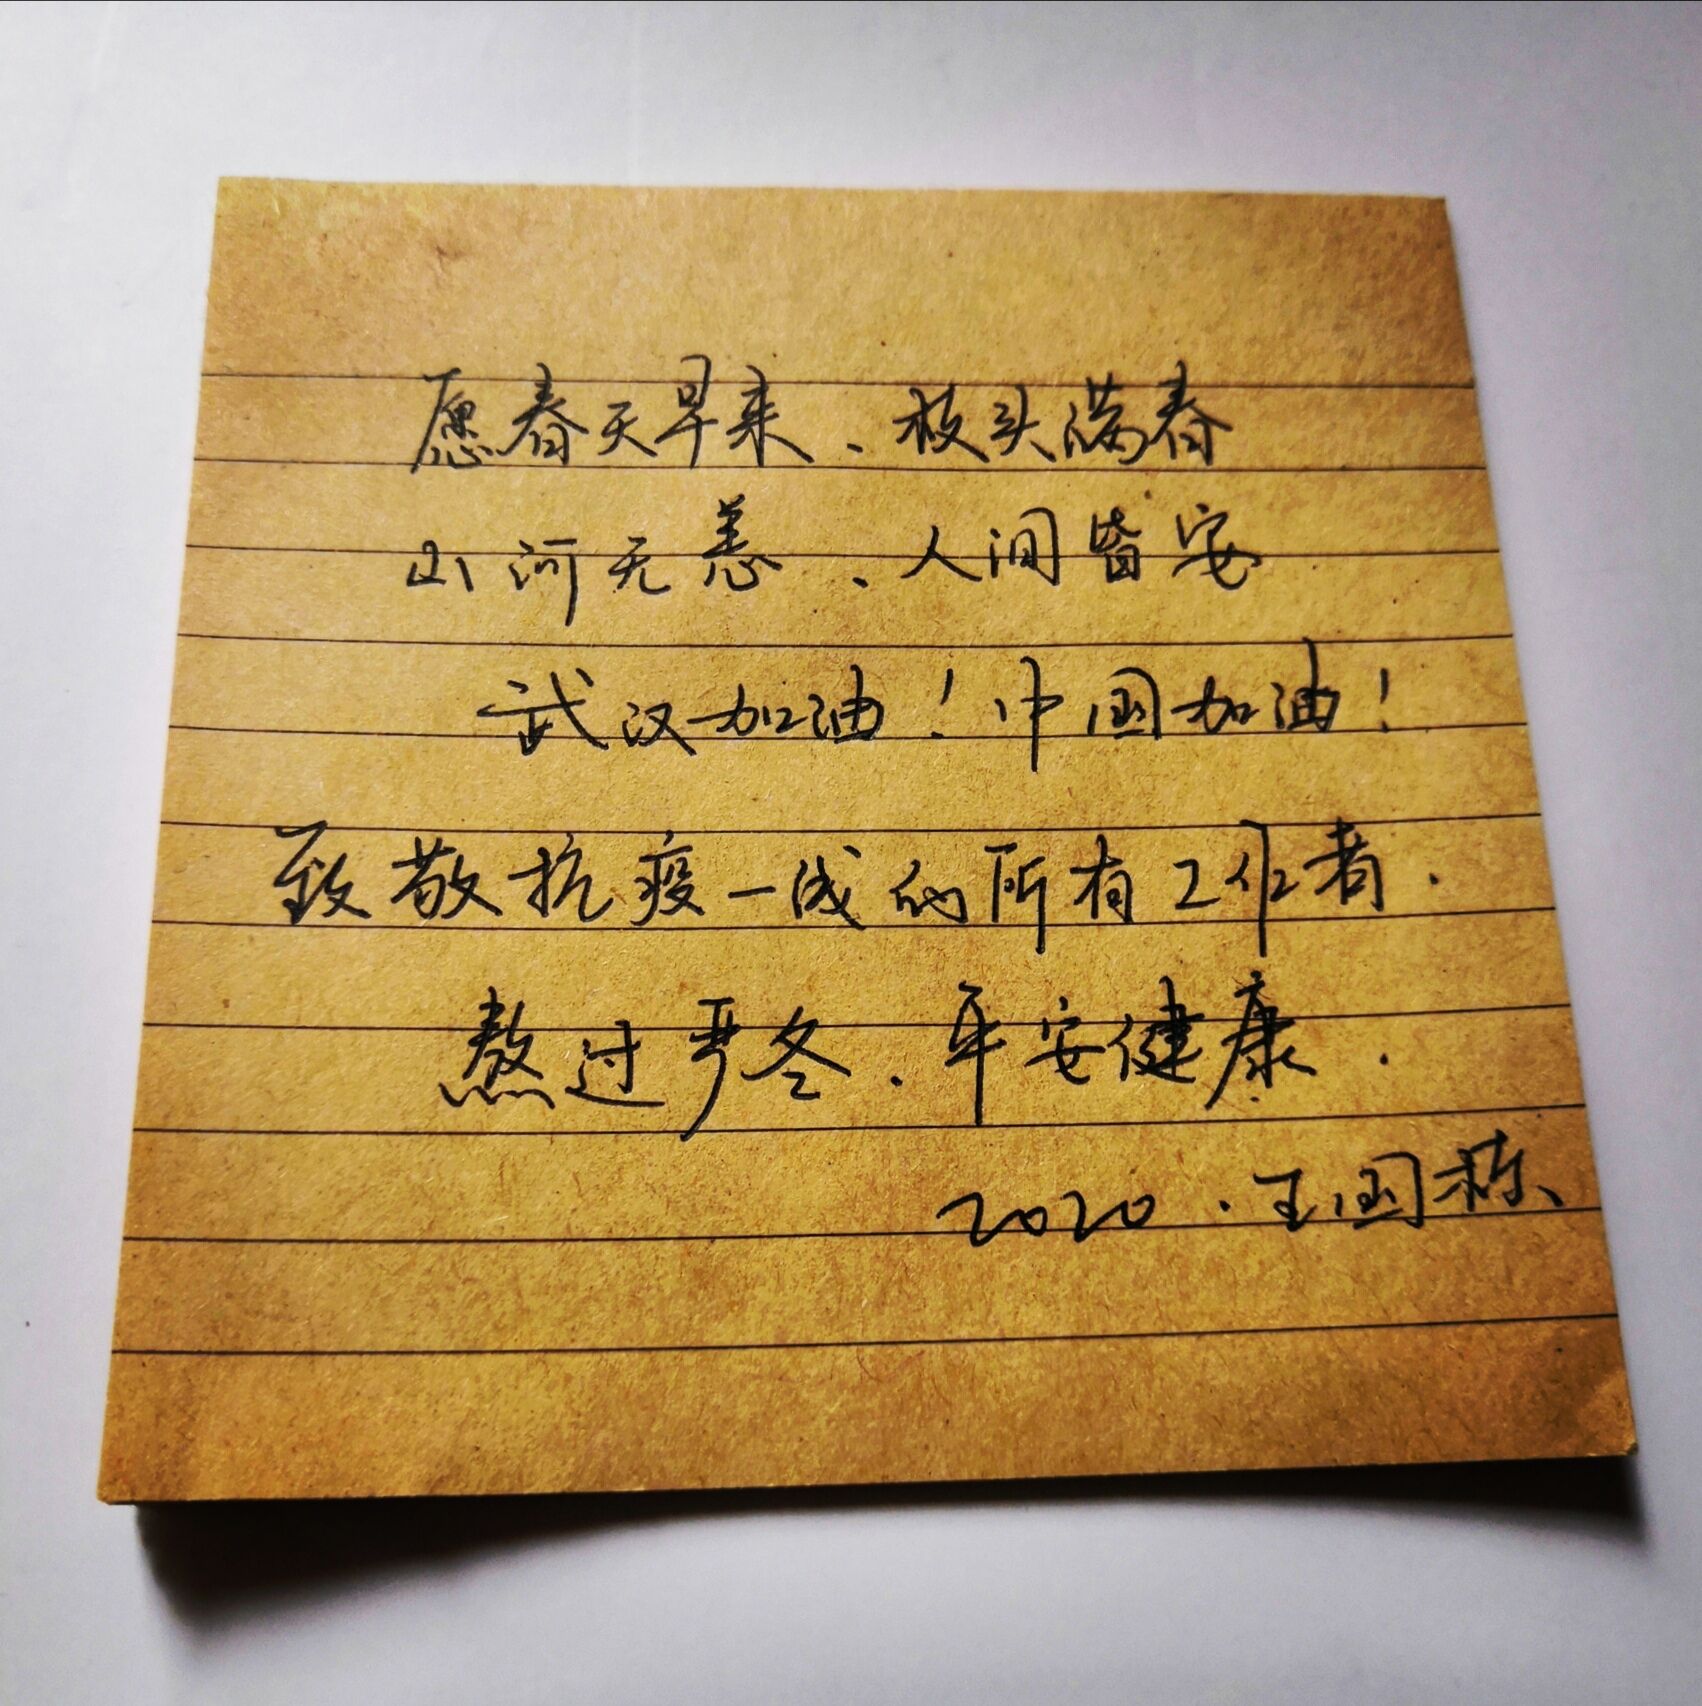 愿春天早来、枝头满春
山河无恙、人间皆安
武汉加油！中国加油！
致敬抗疫一线的所有工作者.
熬过严冬.平安健康.
2020.王国栋